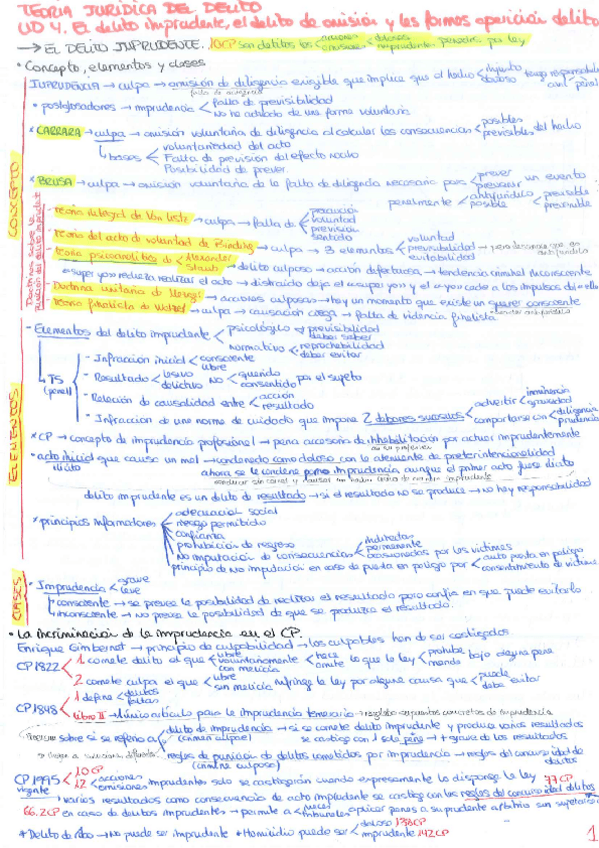 TEORIA JURÍDICA DEL DELITO
UD 4. El delito imprudente, el delito de omisión y las formas aparición delito
→ EL DELITO IMPRUDENTE. 10CP son delitos las acciones omisiones dolosas imprudentes penadas por ley
• Concepto, elementos y clases
CONCEPTO
IMPRUDENCIA → culpa → omisión de diligencia exigible que implica que el hecho injusto doloso tenga responsabilidad civil penal
• postglosadores → imprudencia falta de previsibilidad
No ha actuado de una forma voluntaria
* CARRARA → culpa → omisión voluntaria de diligencia al calcular las consecuencias posibles previsibles del hecho
bases voluntariedad del acto
Falta de previsión del efecto nocivo
Posibilidad de prever.
* BEUSA → culpa → omisión voluntaria de la falta de diligencia necesaria para prever prevenir un evento
penalmente antijurídico posible previsible prevenible
- Teoria integral de Von Liszt → culpa → falta de precaución
voluntad
previsión
sentido
- Teoria del acto de voluntad de Binding → culpa → 3 elementos voluntad
previsibilidad
evitabilidad
- Teoria psicoanalítica de Alexander Staub → delito culposo → acción defectuosa → tendencia criminal inconsciente
- Doctrina unitaria de → acciones culposas → hay un momento que existe un querer consciente
- Teoria finalista de Welzel → culpa → causación ciega → falta de videncia finalista
ELEMENTOS
- Elementos del delito imprudente psicológico previsibilidad
deber saber
normativo reprochabilidad
deber evitar
TS (penal)
- Infracción inicial consciente
libre
- Resultado lesivo delictivo No querido consentido por el sujeto
- Relación de causalidad entre acción
resultado
- Infracción de una norma de cuidado que impone 2 deberes sucesivos advertir inminencia gravedad
comportarse con diligencia prudencia
* CP → concepto de imprudencia profesional → pena accesoria de inhabilitación por actuar imprudentemente
• acto inicial ilícito que causa un mal → condenado como doloso con la atenuante de preterintencionalidad
ahora se le condena por imprudencia aunque el primer acto fuese ilícito
delito imprudente es un delito de resultado → si el resultado no se produce → no hay responsabilidad
* principios informadores adecuación social
riesgo permitido
confianza
prohibición de regreso
No imputación de consecuencias indirectas permanente ocasionadas por las víctimas
principio de No imputación en caso de puesta en peligro por auto puesta en peligro
consentimiento de víctima
CLASES
• Imprudencia grave
leve
consciente → se prevee la posibilidad de realizar el resultado pero confía en que puede evitarlo
inconsciente → no prevee la posibilidad de que se produzca el resultado.
• La incriminación de la imprudencia en el CP.
Enrique Gimbernat → principio de culpabilidad → los culpables han de ser castigados.
CP 1822 1 comete delito el que libre voluntariamente con malicia hace omite lo que la ley prohíbe manda bajo alguna pena
2 comete culpa el que libre sin malicia infringe la ley por alguna causa que puede debe evitar
CP 1848 1 define delitos
faltas
Libro II → único artículo para la imprudencia temeraria
sobre si se refiere a delito de imprudencia → si se comete delito imprudente y produce varios resultados
(crimen culpae) se castiga con 1 sola pena → + grave de los resultados
reglas de punición de delitos cometidos por imprudencia → reglas del concurso ideal de delitos
(crimina culposa)
CP 1995 vigente 10CP
12 acciones omisiones imprudentes solo se castigarán cuando expresamente lo disponga la ley
77CP
→ varios resultados como consecuencia de acto imprudente se castiga con las reglas del concurso ideal delitos
66.2CP en caso de delitos imprudentes → permite a jueces tribunales aplicar penas a su prudente arbitrio sin sujetarse
* Delito de Robo → No puede ser imprudente * Homicidio puede ser doloso 138CP
imprudente 142CP
1